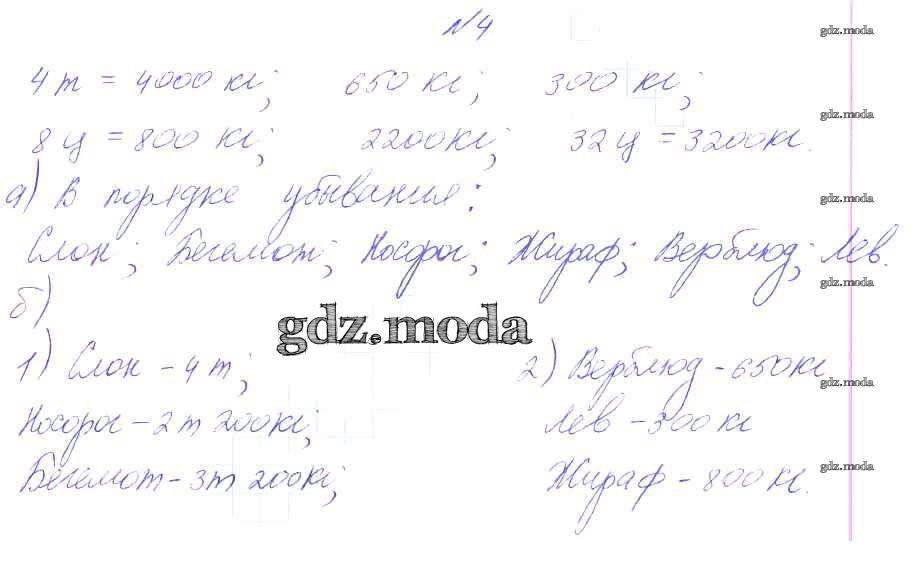 №4
gdz.moda
4 т = 4000 кг; 650 кг; 300 кг;
gdz.moda
8 ц = 800 кг; 2200кг; 32 ц = 3200кг.
а) В порядке убывания:
gdz.moda
Слон; Бегемот; Носорог; Жираф; Верблюд; Лев.
gdz.moda
б)
gdz.moda
1) Слон - 4 т; 2) Верблюд - 650 кг
gdz.moda
Носорог - 2 т 200кг; Лев - 300 кг
gdz.moda
Бегемот - 3т 200кг; Жираф - 800 кг.